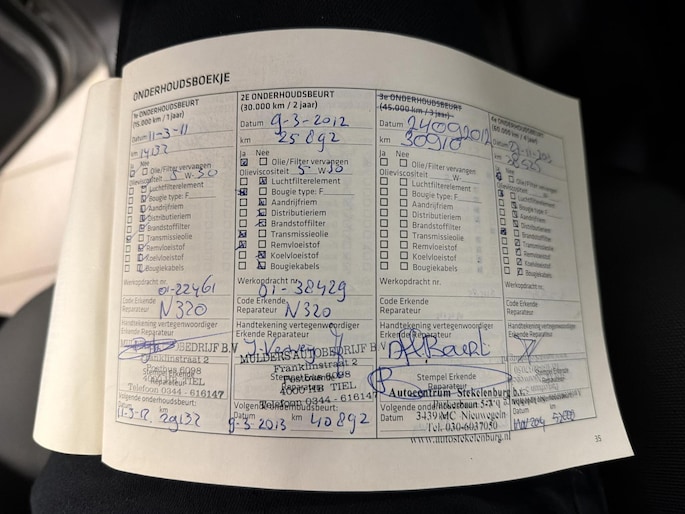 ONDERHOUDSBOEKJE
1e ONDERHOUDSBEURT
(15.000 km / 1 jaar)
Datum 11-3-11
km 14132
Ja Nee
Olie/Filter vervangen
Olieviscositeit 5 W-30
Luchtfilterelement
Bougie type: F
Aandrijfriem
Distributieriem
Brandstoffilter
Transmissieolie
Remvloeistof
Koelvloeistof
Bougiekabels
Werkopdracht nr.
01-22461
Code Erkende
Reparateur N320
Handtekening vertegenwoordiger
Erkende Reparateur
MULDERS AUTOBEDRIJF B.V.
Franklinstraat 2
Postbus 6098
Stempel Erkende
Reparateur TIEL
Telefoon 0344 - 616147
Volgende onderhoudsbeurt:
Datum km
11-3-12 29132
2E ONDERHOUDSBEURT
(30.000 km / 2 jaar)
Datum 9-3-2012
km 25892
Ja Nee
Olie/Filter vervangen
Olieviscositeit 5 W-30
Luchtfilterelement
Bougie type: F
Aandrijfriem
Distributieriem
Brandstoffilter
Transmissieolie
Remvloeistof
Koelvloeistof
Bougiekabels
Werkopdracht nr.
01-38429
Code Erkende
Reparateur N320
Handtekening vertegenwoordiger
Erkende Reparateur
MULDERS AUTOBEDRIJF B.V.
Franklinstraat 2
Stempel Erkende
Reparateur
4000 HB TIEL
Telefoon 0344 - 616147
Volgende onderhoudsbeurt:
Datum km
9-3-2013 40892
3e ONDERHOUDSBEURT
(45.000 km / 3 jaar)
Datum 24092012
km 30910
Ja Nee
Olie/Filter vervangen
Olieviscositeit W
Luchtfilterelement
Bougie type: F
Aandrijfriem
Distributieriem
Brandstoffilter
Transmissieolie
Remvloeistof
Koelvloeistof
Bougiekabels
Werkopdracht nr.
Code Erkende
Reparateur
Handtekening vertegenwoordiger
Erkende Reparateur
Stempel Erkende
Reparateur
Autocentrum Stekelenburg b.v.
3439 MC Nieuwegein
Volgende onderhoudsbeurt:
Tel. 030-6037050
Datum km
www.autostekelenburg.nl
4e ONDERHOUDSBEURT
(60.000 km / 4 jaar)
Datum
km
Ja Nee
Olie/Filter vervangen
Olieviscositeit W
Luchtfilterelement
Bougie type: F
Aandrijfriem
Distributieriem
Brandstoffilter
Transmissieolie
Remvloeistof
Koelvloeistof
Bougiekabels
Werkopdracht nr.
Code Erkende
Reparateur
Handtekening vertegenwoordiger
Erkende Reparateur
Stempel Erkende
Reparateur
Datum km
35